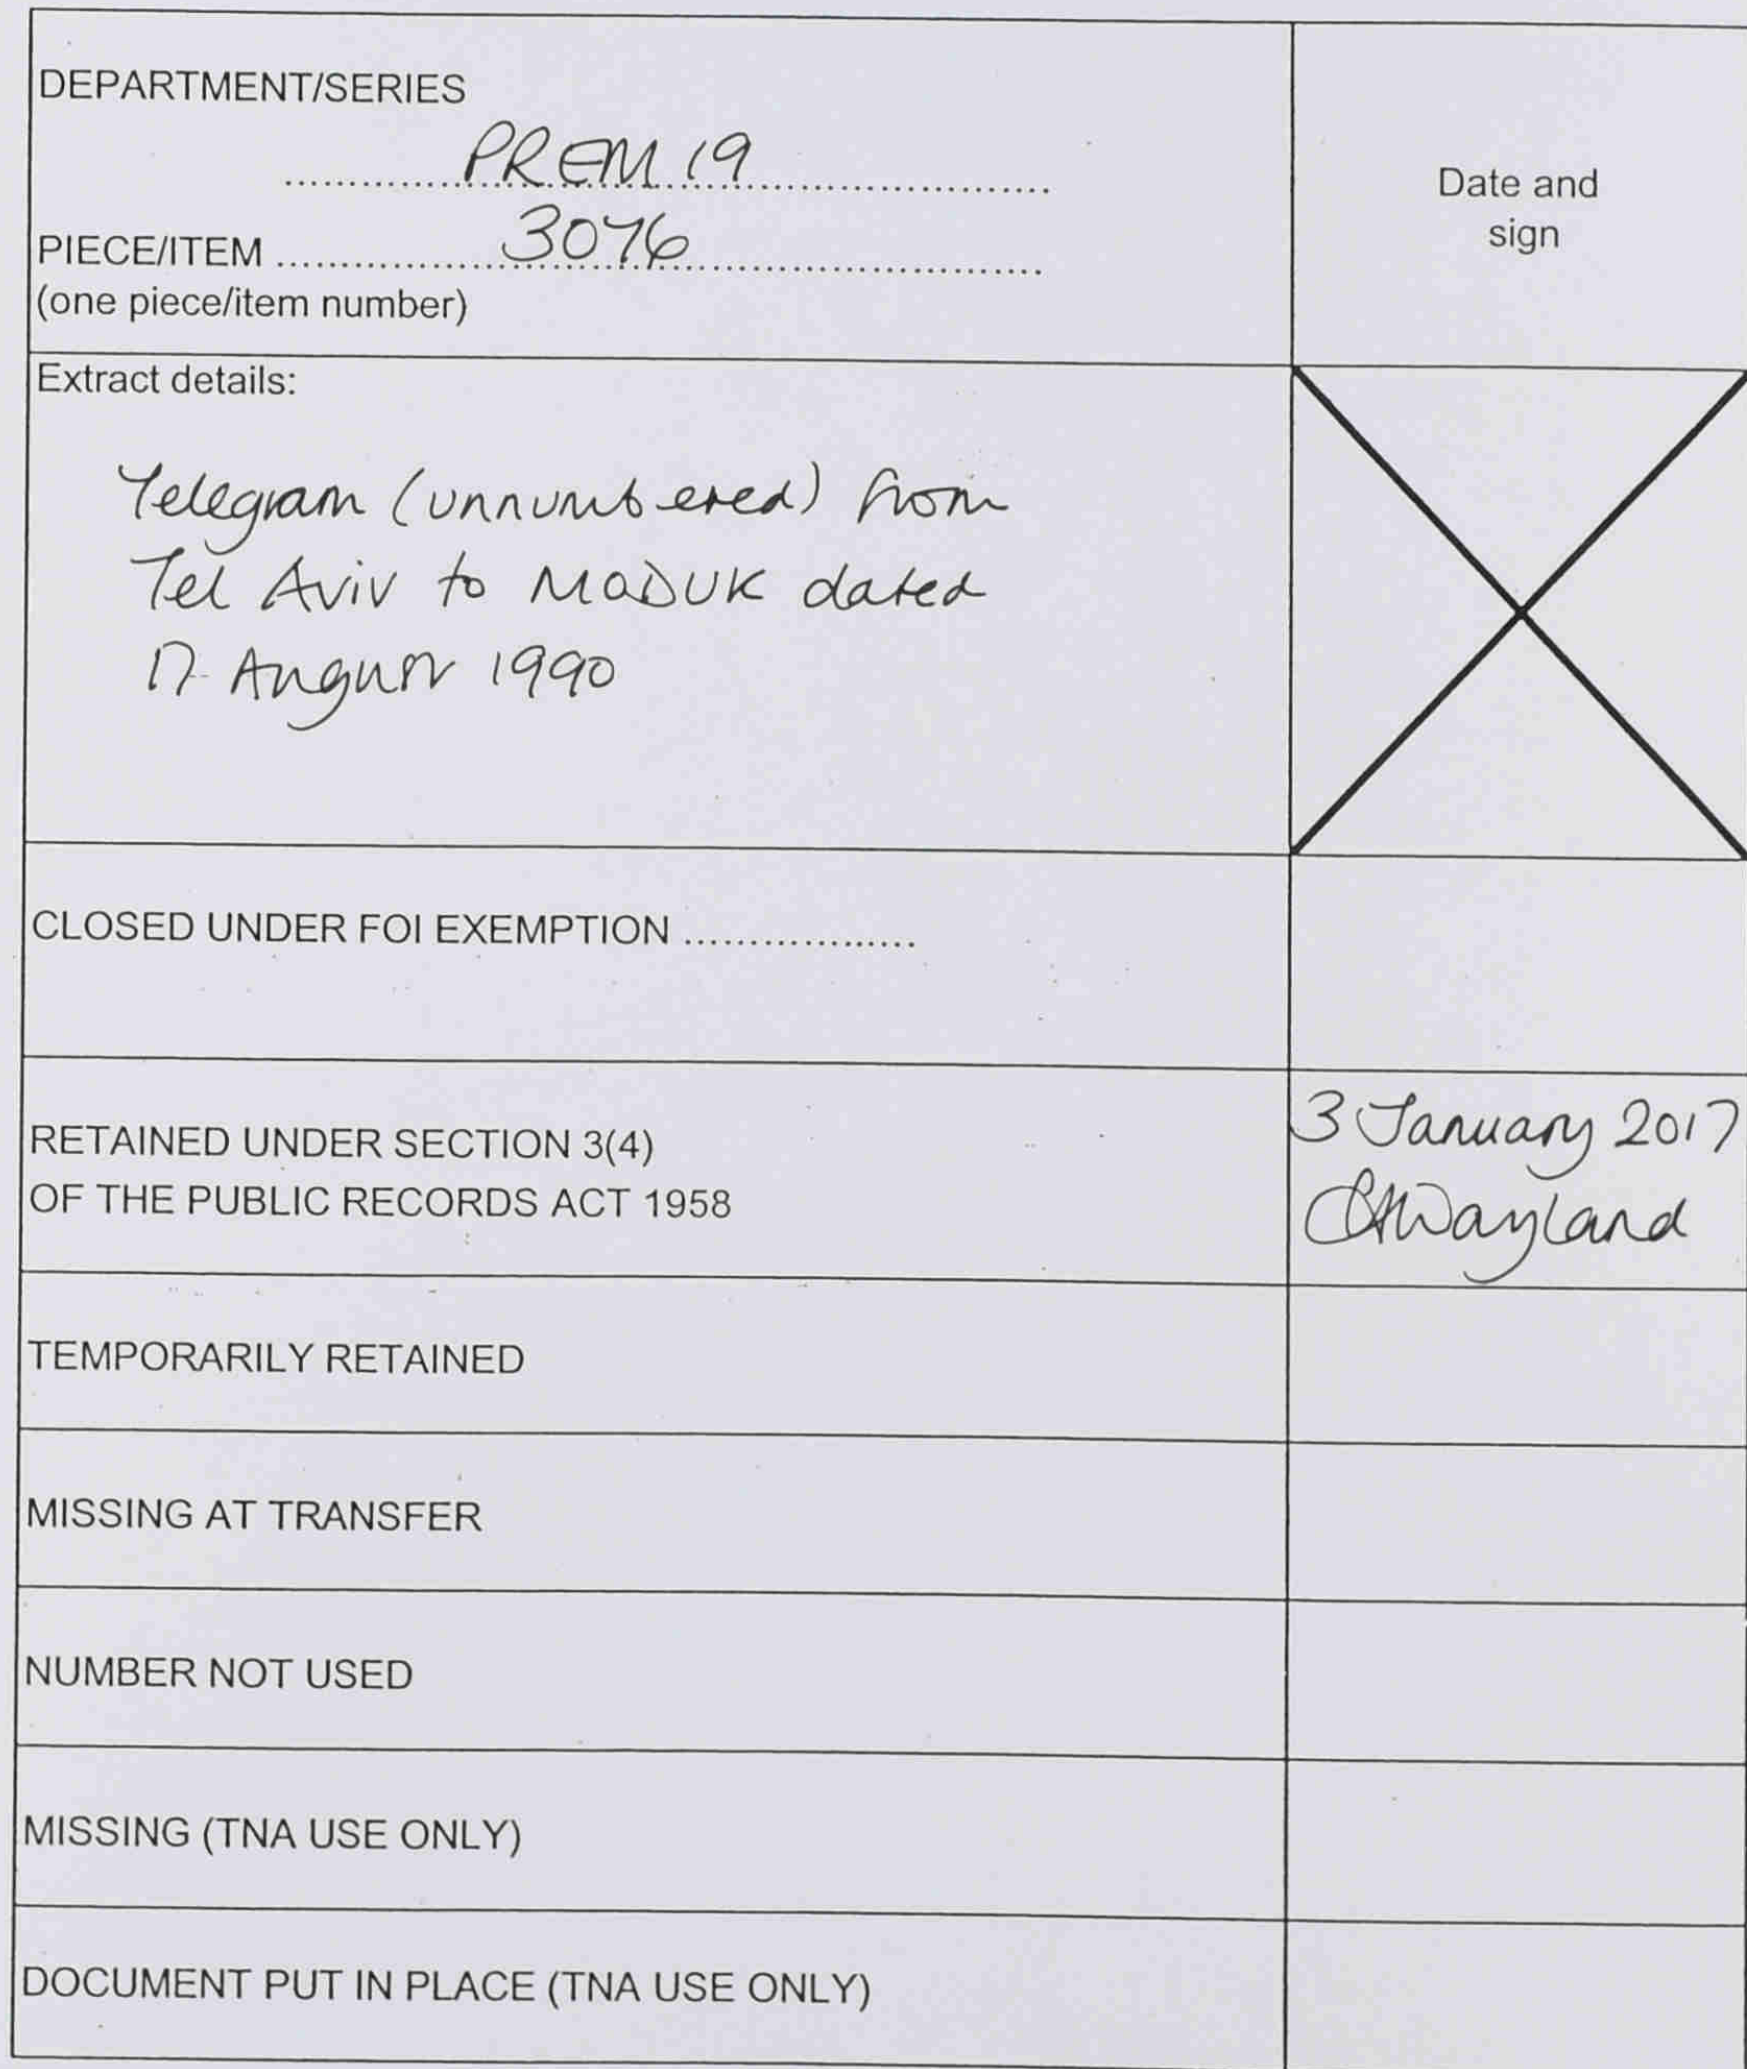 DEPARTMENT/SERIES
PREM 19
Date and
sign
PIECE/ITEM 3076
(one piece/item number)
Extract details:
Telegram (unnumbered) from
Tel Aviv to MODUK dated
17 August 1990
CLOSED UNDER FOI EXEMPTION ..................
RETAINED UNDER SECTION 3(4)
OF THE PUBLIC RECORDS ACT 1958
3 January 2017
Wayland
TEMPORARILY RETAINED
MISSING AT TRANSFER
NUMBER NOT USED
MISSING (TNA USE ONLY)
DOCUMENT PUT IN PLACE (TNA USE ONLY)